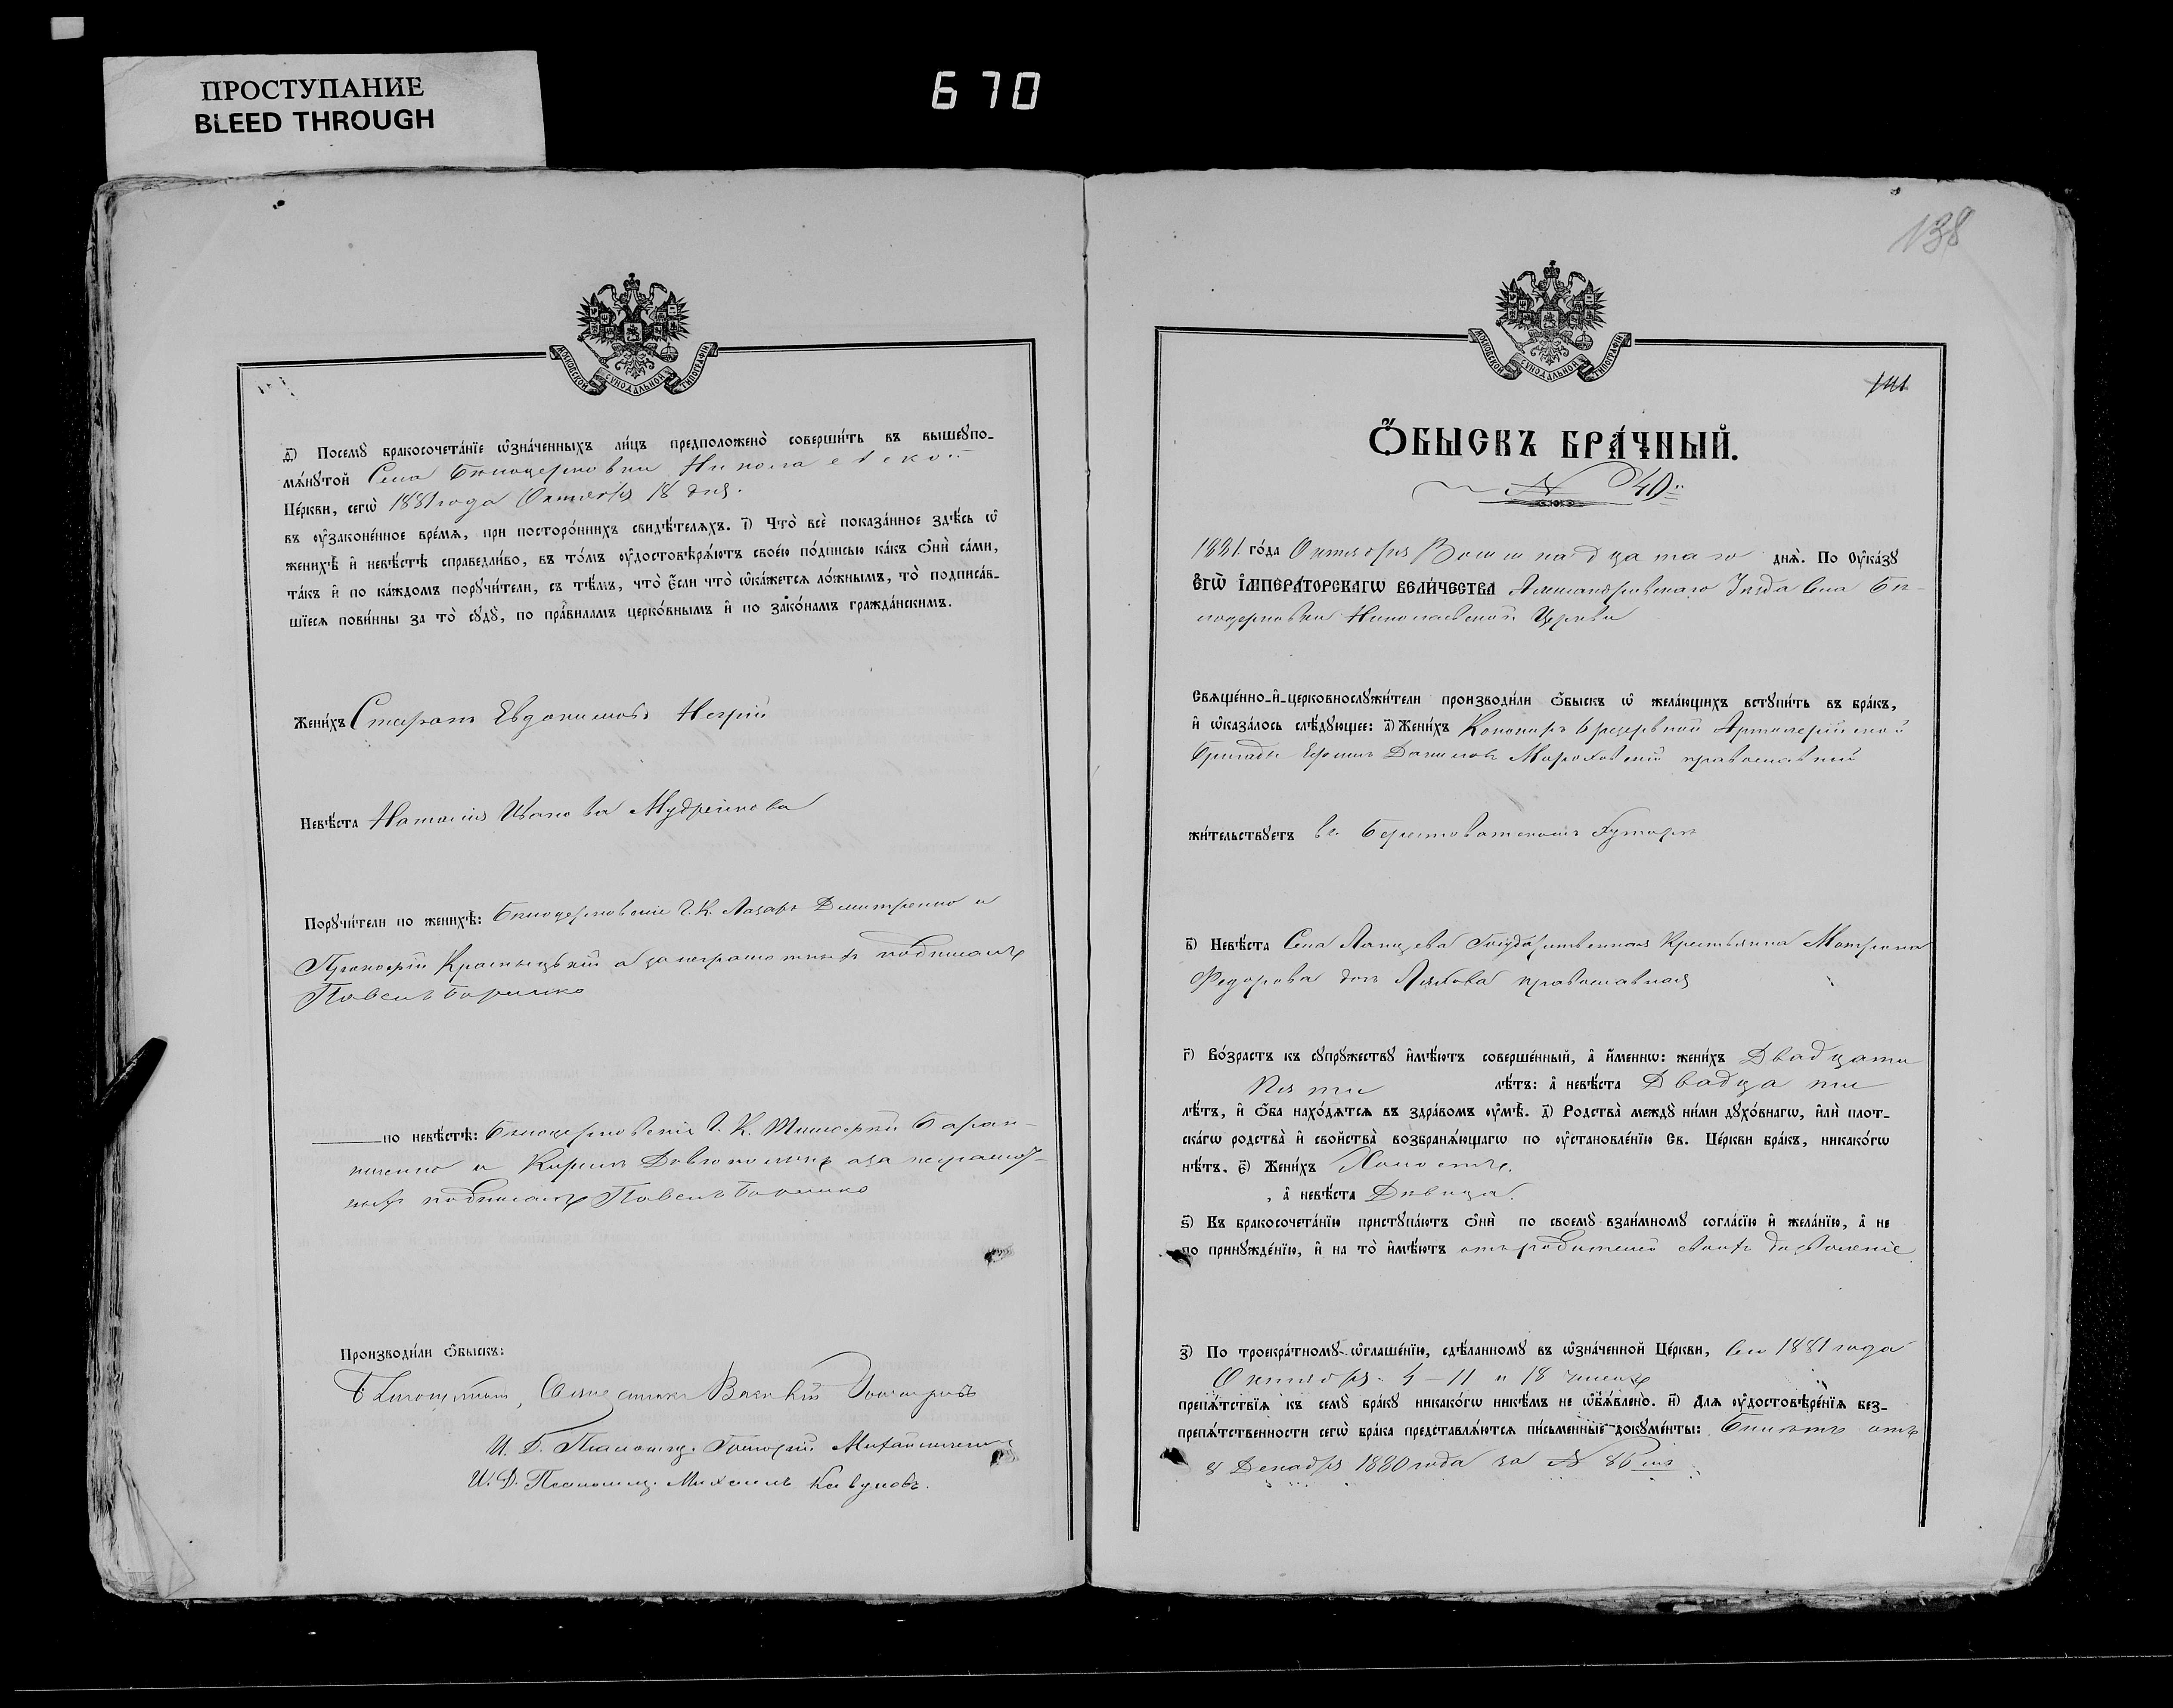 ПРОСТУПАНИЕ
BLEED THROUGH
670
МОСКОВСКОЙ СѴНОДАЛЬНОЙ ТИПОГРАФІИ
Посемꙋ̀ бракосочета́нїе ѡ҆зна́ченныхъ ли́цъ предположено̀ соверши́ть въ вышеꙋпо-
мѧ́нꙋтой Села Бѣлоцерковки Николаевской
Це́ркви, сегѡ̀ 1881 года Октября 18 дня.
въ ᲂу҆законе́нное вре́мѧ, при посторо́ннихъ свидѣ́телѧхъ. і҃) Что̀ всѐ показа́нное здѣ́сь ѡ҆
женихѣ̀ и҆ невѣ́стѣ справедли́во, въ то́мъ ᲂу҆достовѣрѧ́ютъ свое́ю по́дписью ка́къ ѻ҆нѝ са́ми,
та́къ и҆ по ка́ждомъ порꙋчи́тели, съ тѣ́мъ, что̀ є҆́сли что̀ ѡ҆ка́жетсѧ ло́жнымъ, то̀ подписа́в-
шїесѧ пови́нны за то̀ сꙋдꙋ̀, по пра́виламъ церко́внымъ и҆ по зако́намъ гражда́нскимъ.
Жени́хъ Стефанъ Евдокимовъ Негрій
Невѣ́ста Наталія Иванова Мудренкова
Порꙋчи́тели по женихѣ̀: Бѣлоцерковскіе Г. К. Лазарь Дмитренко и
Прокофій а за неграмотныхъ подписалъ
Павелъ
по невѣ́стѣ: Бѣлоцерковскіе Г. К. Тимофей Баран-
никенко и Кирилъ а за неграмот-
ныхъ подписалъ Павелъ
Производи́ли ѻ҆́быскъ:
Священникъ
И. Д. Псаломщ. Григорій
И. Д. Псаломщ. Михаилъ Кавуновъ.
138
МОСКОВСКОЙ СѴНОДАЛЬНОЙ ТИПОГРАФІИ
141
Ѻ҆́БЫСКЪ БРА́ЧНЫЙ.
N 40
1881 го́да Октября Восемнадцатаго днѧ̀. По ᲂу҆ка́зꙋ
Є҆ГѠ̀ И҆МПЕРА́ТОРСКАГѠ ВЕЛИ́ЧЕСТВА Александровскаго Уѣзда Села Бѣ-
лоцерковки Николаевской Церкви
Свѧще́нно-и҆-церковнослꙋжи́тели производи́ли ѻ҆́быскъ ѡ҆ жела́ющихъ встꙋпи́ть въ бра́къ,
и҆ ѡ҆каза́лось слѣ́дꙋющее: а҃) Жени́хъ Канониръ 6 резервной Артилерійской
Бригады Ефимъ Даниловъ Мороховскій православный
жи́тельствꙋетъ въ Берестоватскомъ Хуторѣ
в҃) Невѣ́ста Села Государственная Крестьянка Матрона
Федорова дочь Ляхова православная
г҃) Во́зрастъ къ сꙋпрꙋ́жествꙋ и҆мѣ́ютъ соверше́нный, а҆ и҆́меннѡ: жени́хъ Двадцати
пяти лѣ́тъ: а҆ невѣ́ста Двадцати
лѣ́тъ, и҆ ѻ҆́ба нахо́дѧтсѧ въ здра́вомъ ᲂу҆мѣ̀. д҃) Родства̀ междꙋ̀ ни́ми дꙋхо́внагѡ, и҆лѝ плот-
ска́гѡ родства̀ и҆ сво́йства̀ возбранѧ́ющагѡ по ᲂу҆становле́нїю Св. Це́ркви бра́къ, никако́гѡ
нѣ́тъ. є҃) Жени́хъ Холостъ.
, а҆ невѣ́ста Дѣвица.
ѕ҃) Къ бракосочета́нїю пристꙋпа́ютъ ѻ҆нѝ по своемꙋ̀ взаи́мномꙋ согла́сїю и҆ жела́нїю, а҆ не
по принꙋжде́нїю, и҆ на то̀ и҆мѣ́ютъ отъ родителей своихъ дозволеніе
з҃) По троекра́тномꙋ ѡ҆глаше́нїю, сдѣ́ланномꙋ въ ѡ҆зна́ченной Це́ркви, Сего 1881 года
Октября 4 – 11 и 18 чиселъ
препѧ́тствїѧ къ семꙋ̀ бра́кꙋ никако́гѡ никѣ́мъ не ѡ҆б̾ѧ́влено̀. и҃) Длѧ ᲂу҆достовѣре́нїѧ без-
препѧ́тственности сегѡ̀ бра́ка представлѧ́ютсѧ пи́сьменные докꙋме́нты: Билетъ отъ
8 Декабря 1880 года за N